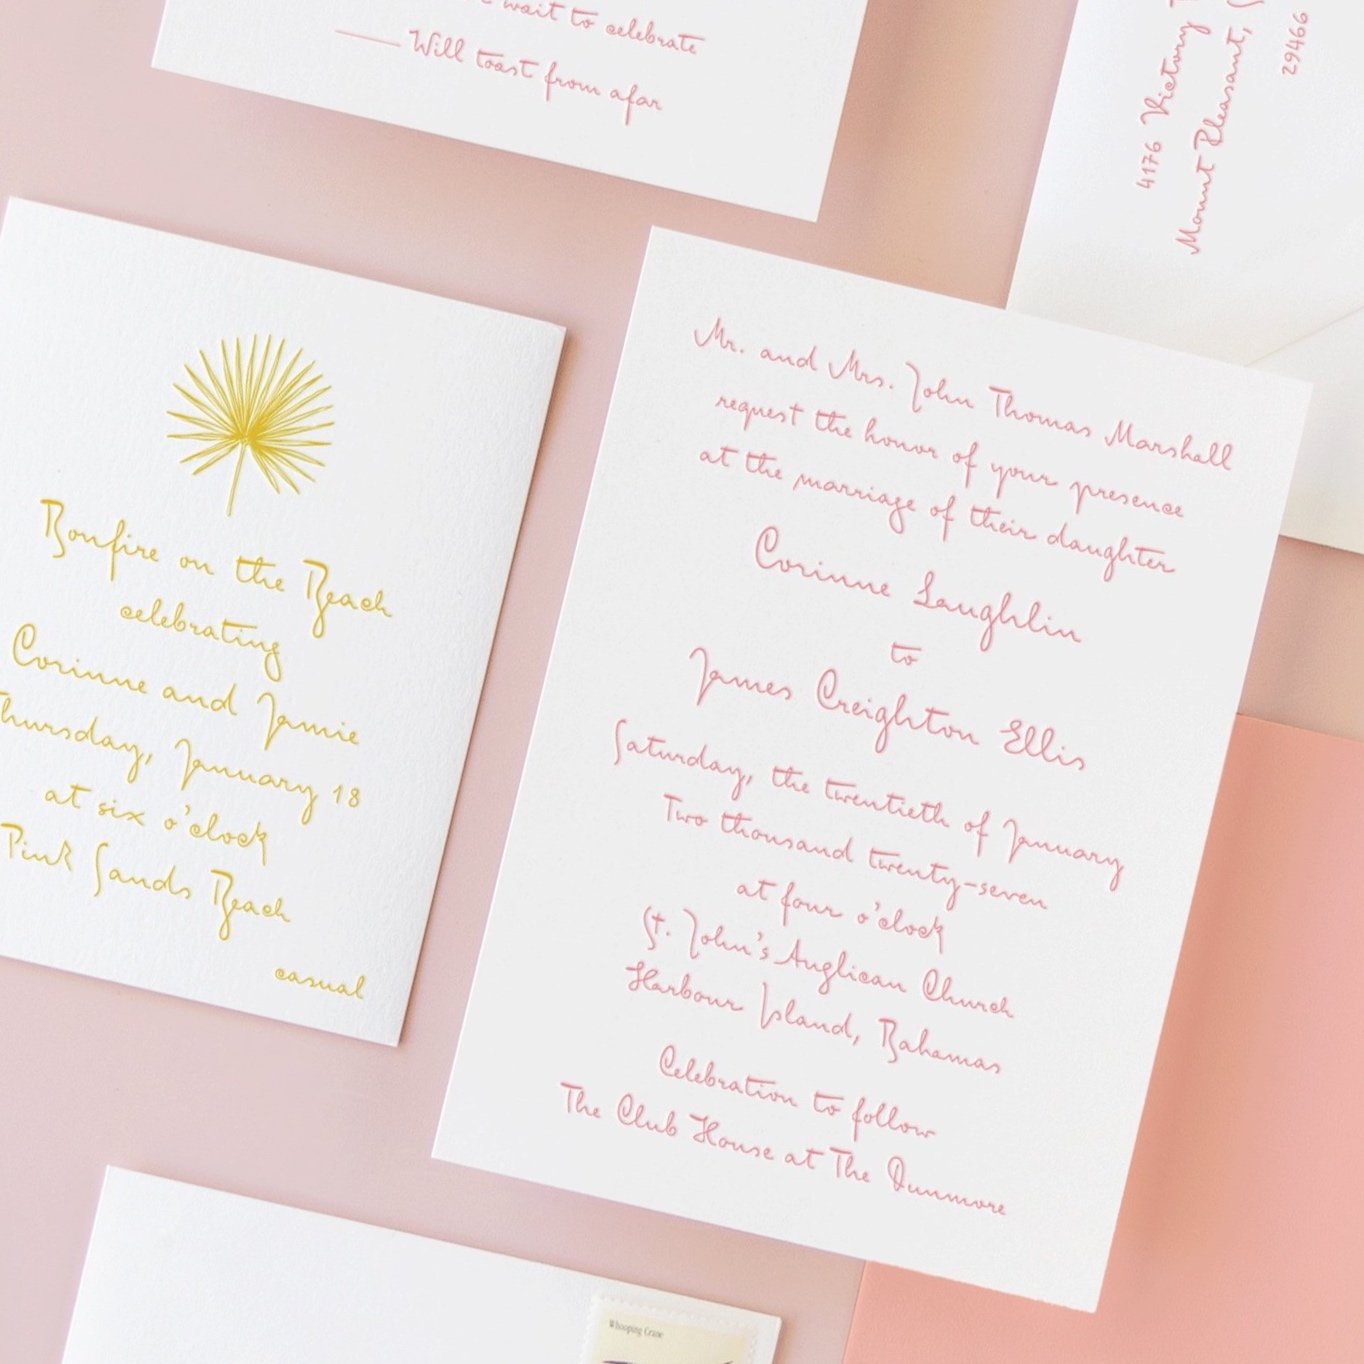 wait to celebrate
Will toast from afar
4176 Victory
Mount Pleasant,
29466
Bonfire on the Beach
celebrating
Corinne and Jamie
Thursday, January 18
at six o'clock
Pink Sands Beach
casual
Mr. and Mrs. John Thomas Marshall
request the honor of your presence
at the marriage of their daughter
Corinne Laughlin
to
James Creighton Ellis
Saturday, the twentieth of January
Two thousand twenty-seven
at four o'clock
St. John's Anglican Church
Harbour Island, Bahamas
Celebration to follow
The Club House at The Dunmore
Whooping Crane